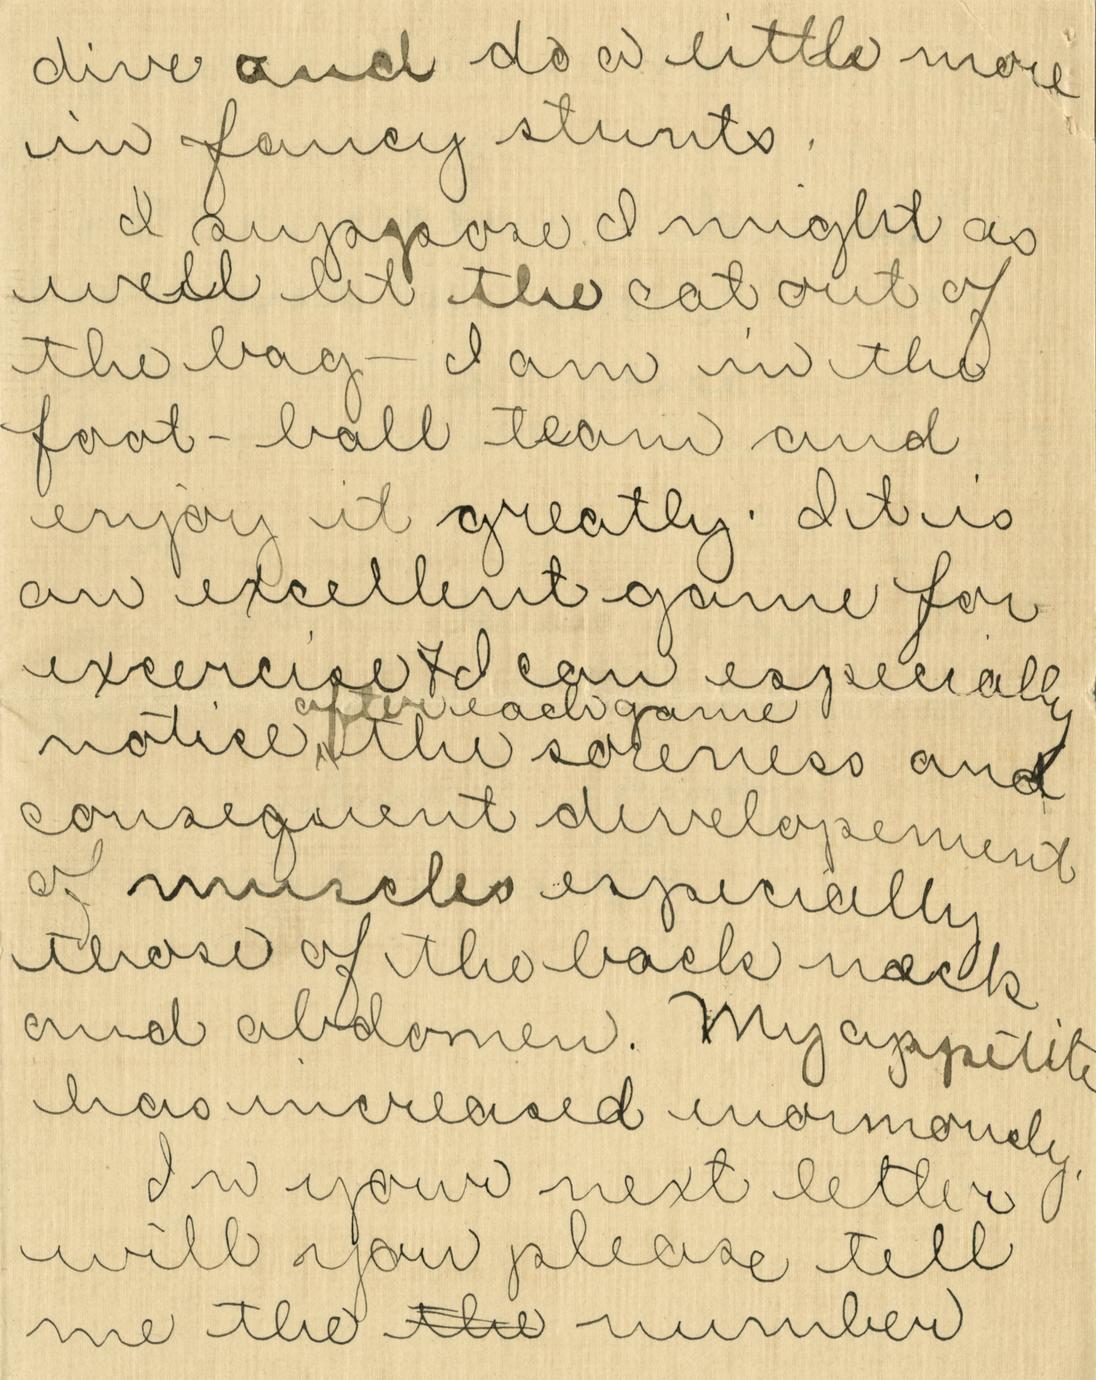 dive and do a little more
in fancy stunts.
I suppose I might as
well let the cat out of
the bag— I am in the
foot-ball team and
enjoy it greatly. It is
an excellent game for
excercise & I can especially
after each game
notice the soreness and
consequent developement
of muscles especially
those of the back neck
and abdomen. My appetite
has increased enormously.
In your next letter
will you please tell
me the the number